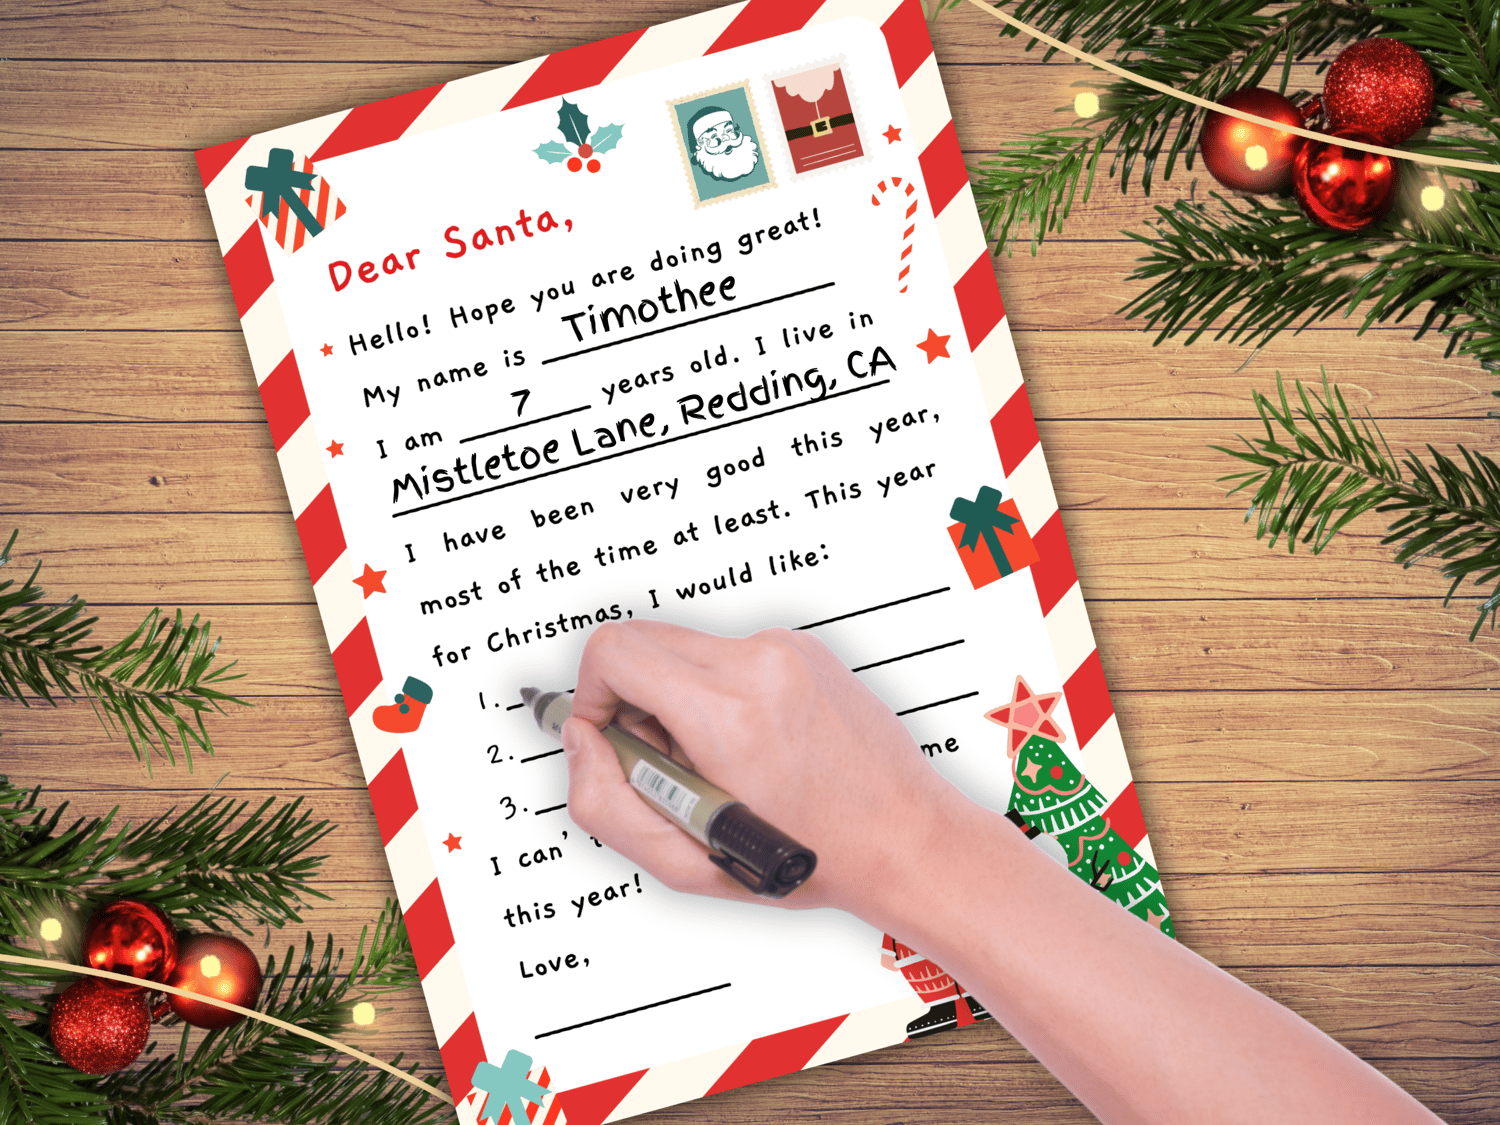 Dear Santa,
Hello! Hope you are doing great!
My name is Timothee
I am 7 years old. I live in
Mistletoe Lane, Redding, CA
I have been very good this year,
most of the time at least. This year
for Christmas, I would like:
1.
2.
3.
I can't me
this year!
Love,